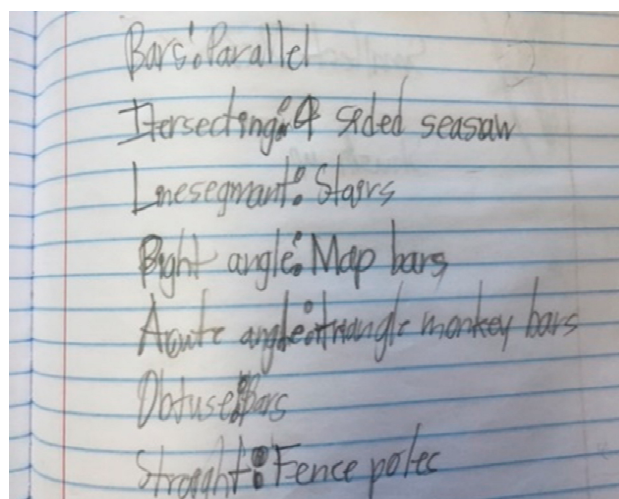 Bars: Parallel
Itersecting: 4 sided seasaw
Linesegmant: Stairs
Right angle: Map bars
Acute angle: triangle monkey bars
Obtuse: bars
Straight: Fence poles